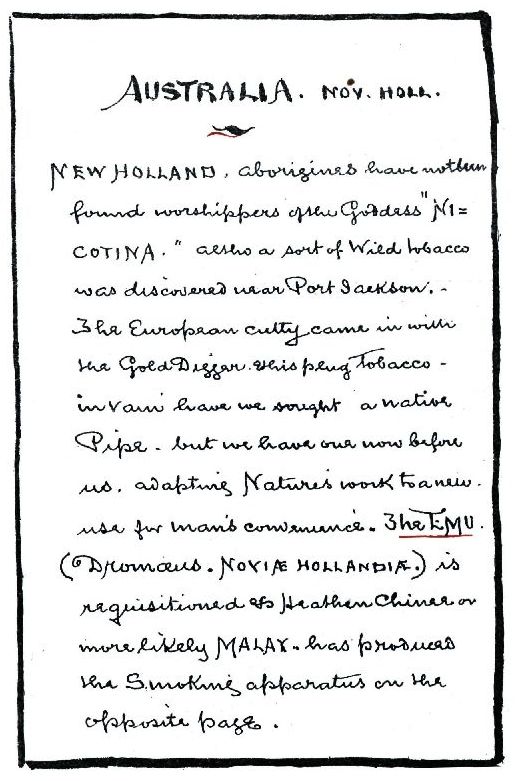 AUSTRALIA. NOV. HOLL.
NEW HOLLAND, aborigines have not been
found worshippers of the Goddess "NI=
COTINA." altho a sort of Wild tobacco
was discovered near Port Jackson. -
The European cutty came in with
the Gold Digger & his plug Tobacco -
in vain have we sought a native
Pipe - but we have one now before
us, adapting Nature's work to a new
use for man's convenience. The EMU.
(Dromæus. NOVIÆ HOLLANDIÆ.) is
requisitioned & Heathen Chinee or
more likely MALAY - has produced
the Smoking apparatus on the
opposite page.